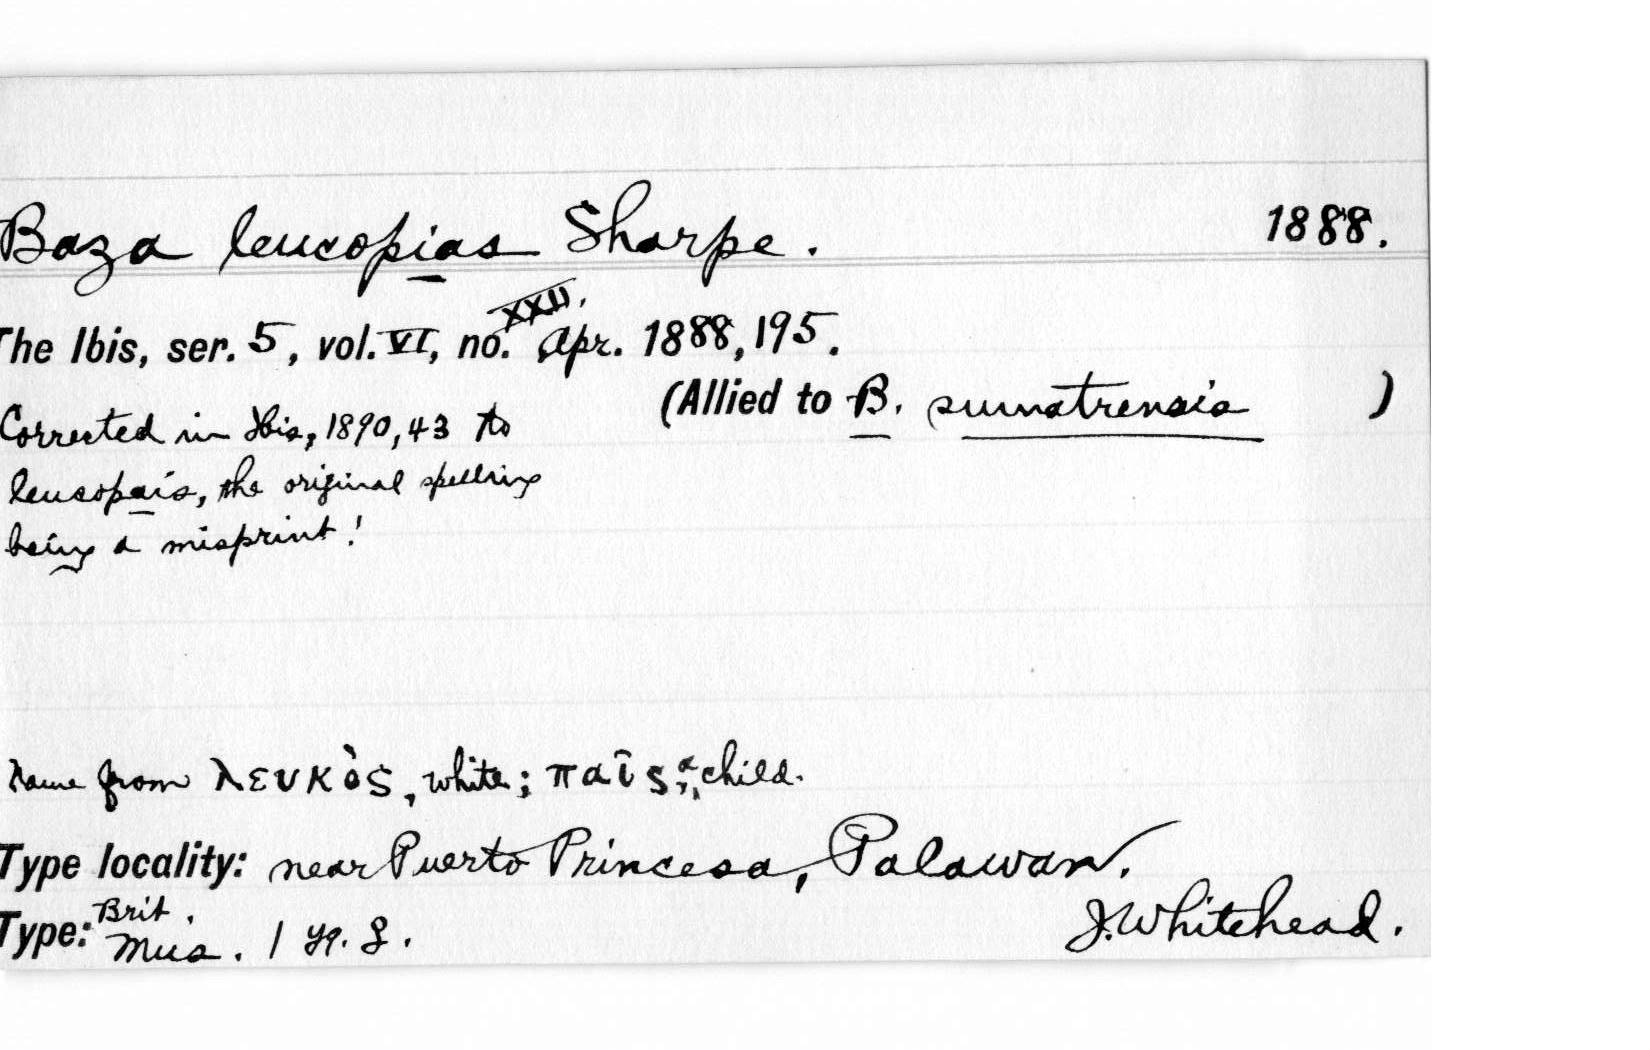 Baza leucopias Sharpe. 1888.
The Ibis, ser. 5, vol. VI, no. XXII, Apr. 1888, 195.
(Allied to B. sumatrensis )
Corrected in Ibis, 1890, 43 to
leucopais, the original spelling
being a misprint!
Name from λευκὸς, white; παῖς, a child.
Type locality: near Puerto Princesa, Palawan.
J. Whitehead.
Type: Brit. Mus. 1